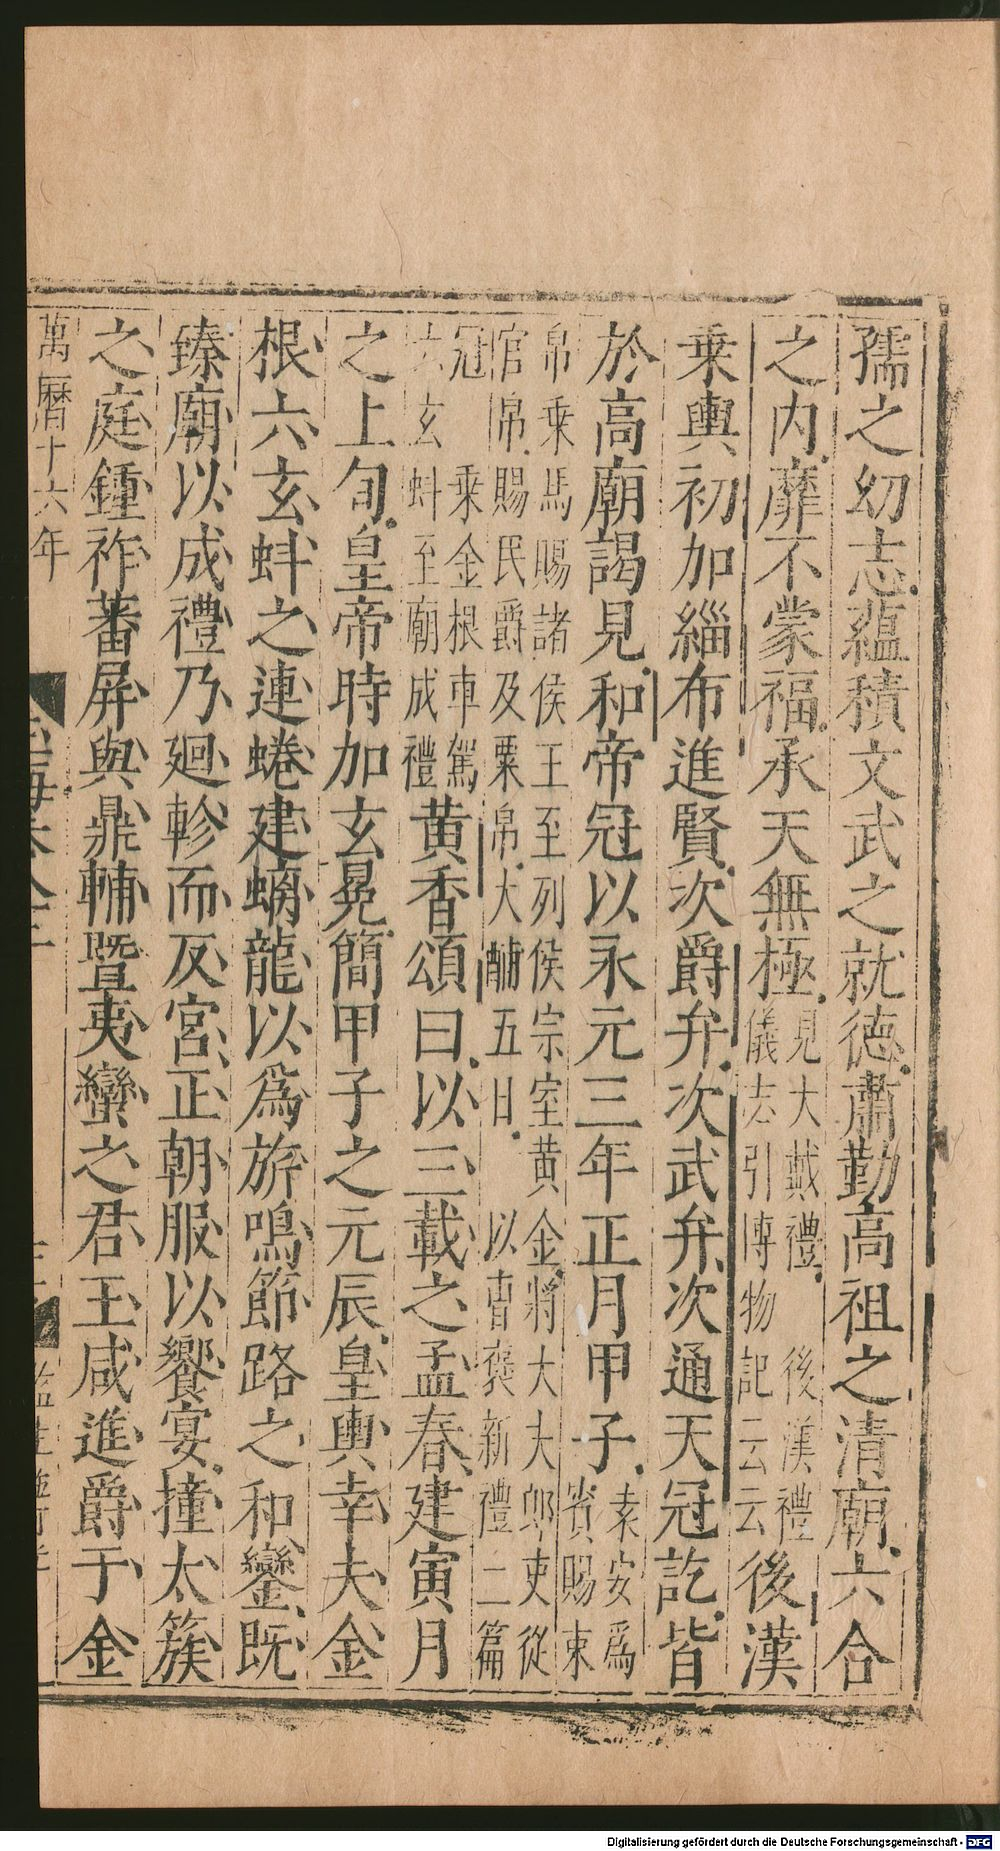 孺之幼志蘊積文武之就德肅勤高祖之清廟六合
之内靡不蒙福承天無極見大戴禮後漢禮儀志引博物記云云後漢
乗輿初加緇布進賢次爵弁次武弁次通天冠訖皆
於高廟謁見和帝冠以永元三年正月甲子素安爲賓賜束
帛乗馬賜諸侯王至列侯宗室黄金將大大郎吏從官帛賜民爵及粟帛大酺五日以曹褒新禮二篇
冠乗金根車駕六玄虯至廟成禮黄香頌曰以三載之孟春建寅月
之上旬皇帝時加玄冕簡甲子之元辰皇輿幸夫金
根六玄虯之連蜷建螭龍以爲旂鳴節路之和鑾既
臻廟以成禮乃廻軫而反宮正朝服以饗宴撞太簇
之庭鍾祚蕃屏與鼎輔暨夷蠻之君王咸進爵于金
萬曆十六年
Digitalisierung gefördert durch die Deutsche Forschungsgemeinschaft - DFG